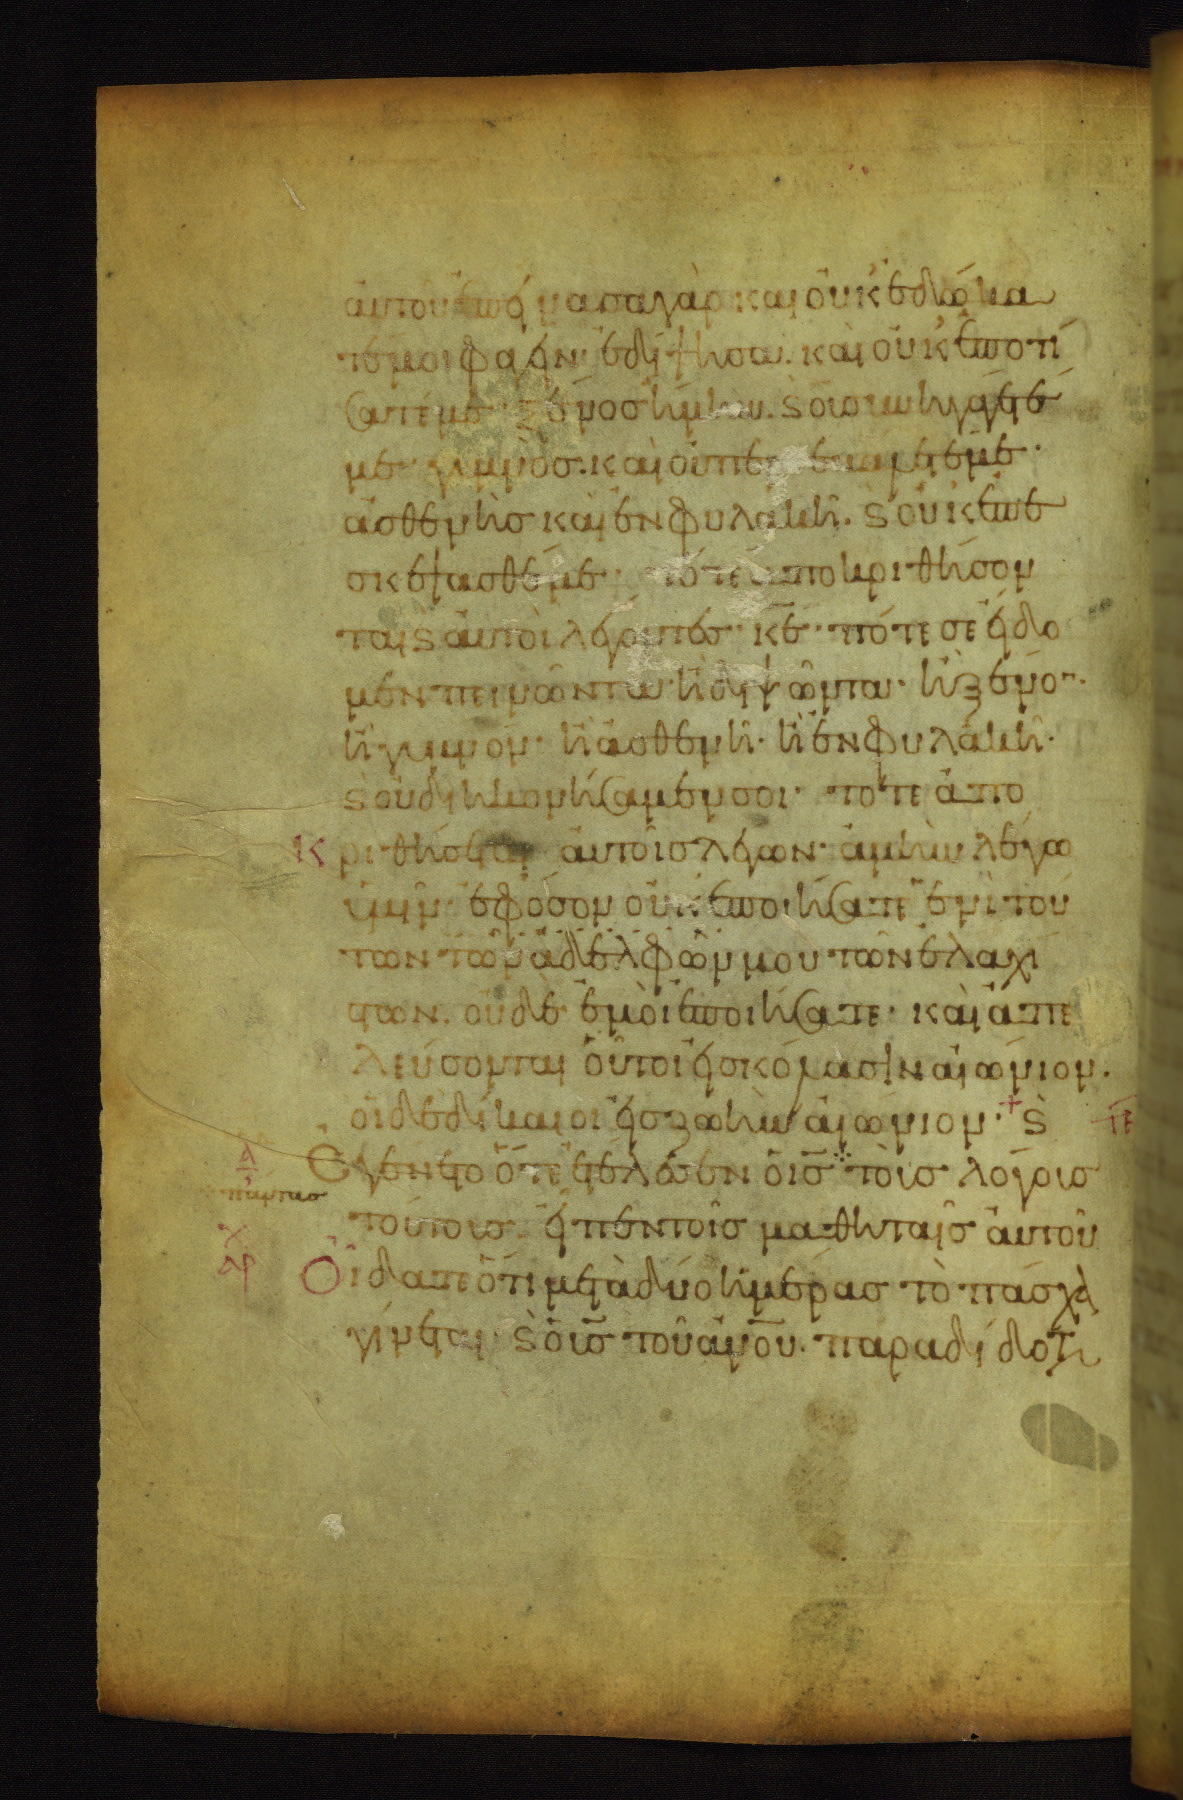 αὐτοῦ ἐπείνασα γὰρ καὶ οὐκ ἐδώκα
τέ μοι φαγεῖν· ἐδίψησα· καὶ οὐκ ἐποτί
σατέ με· ξένος ἤμην· καὶ οὐ συνηγάγετέ
με· γυμνὸς· καὶ οὐ περιεβάλετέ με·
ἀσθενὴς καὶ ἐν φυλακῆ· καὶ οὐκ ἐπε
σκέψασθέ με· τότε ἀποκριθήσον
ται καὶ αὐτοὶ λέγοντες· κε̅· πότε σε εἴδο
μεν πεινῶντα· ἢ διψῶντα· ἢ ξένον·
ἢ γυμνόν· ἢ ἀσθενῆ· ἢ ἐν φυλακῆ·
καὶ οὐ διηκονήσαμέν σοι· τότε ἀπο
κριθήσεται αὐτοῖς λέγων· ἀμὴν λέγω
ὑμῖν· ἐφόσον οὐκ ἐποιήσατε ἑνὶ τού
των τῶν ἀδελφῶν μου τῶν ἐλαχί
στων· οὐδὲ ἐμοὶ ἐποιήσατε· καὶ ἀπε
λεύσονται οὗτοι εἰς κόλασιν αἰώνιον·
οἱ δὲ δίκαιοι εἰς ζωὴν αἰώνιον· + καὶ
Ἐγένετο ὅτε ἐτέλεσεν ὁ ις̅ τοὺς λόγους
πάντας
τούτους εἶπεν τοῖς μαθηταῖς αὐτοῦ
αρ
Οἴδατε ὅτι μετὰ δύο ἡμέρας τὸ πάσχα
γίνεται· καὶ ὁ υς̅ τοῦ ανου̅· παραδίδοται